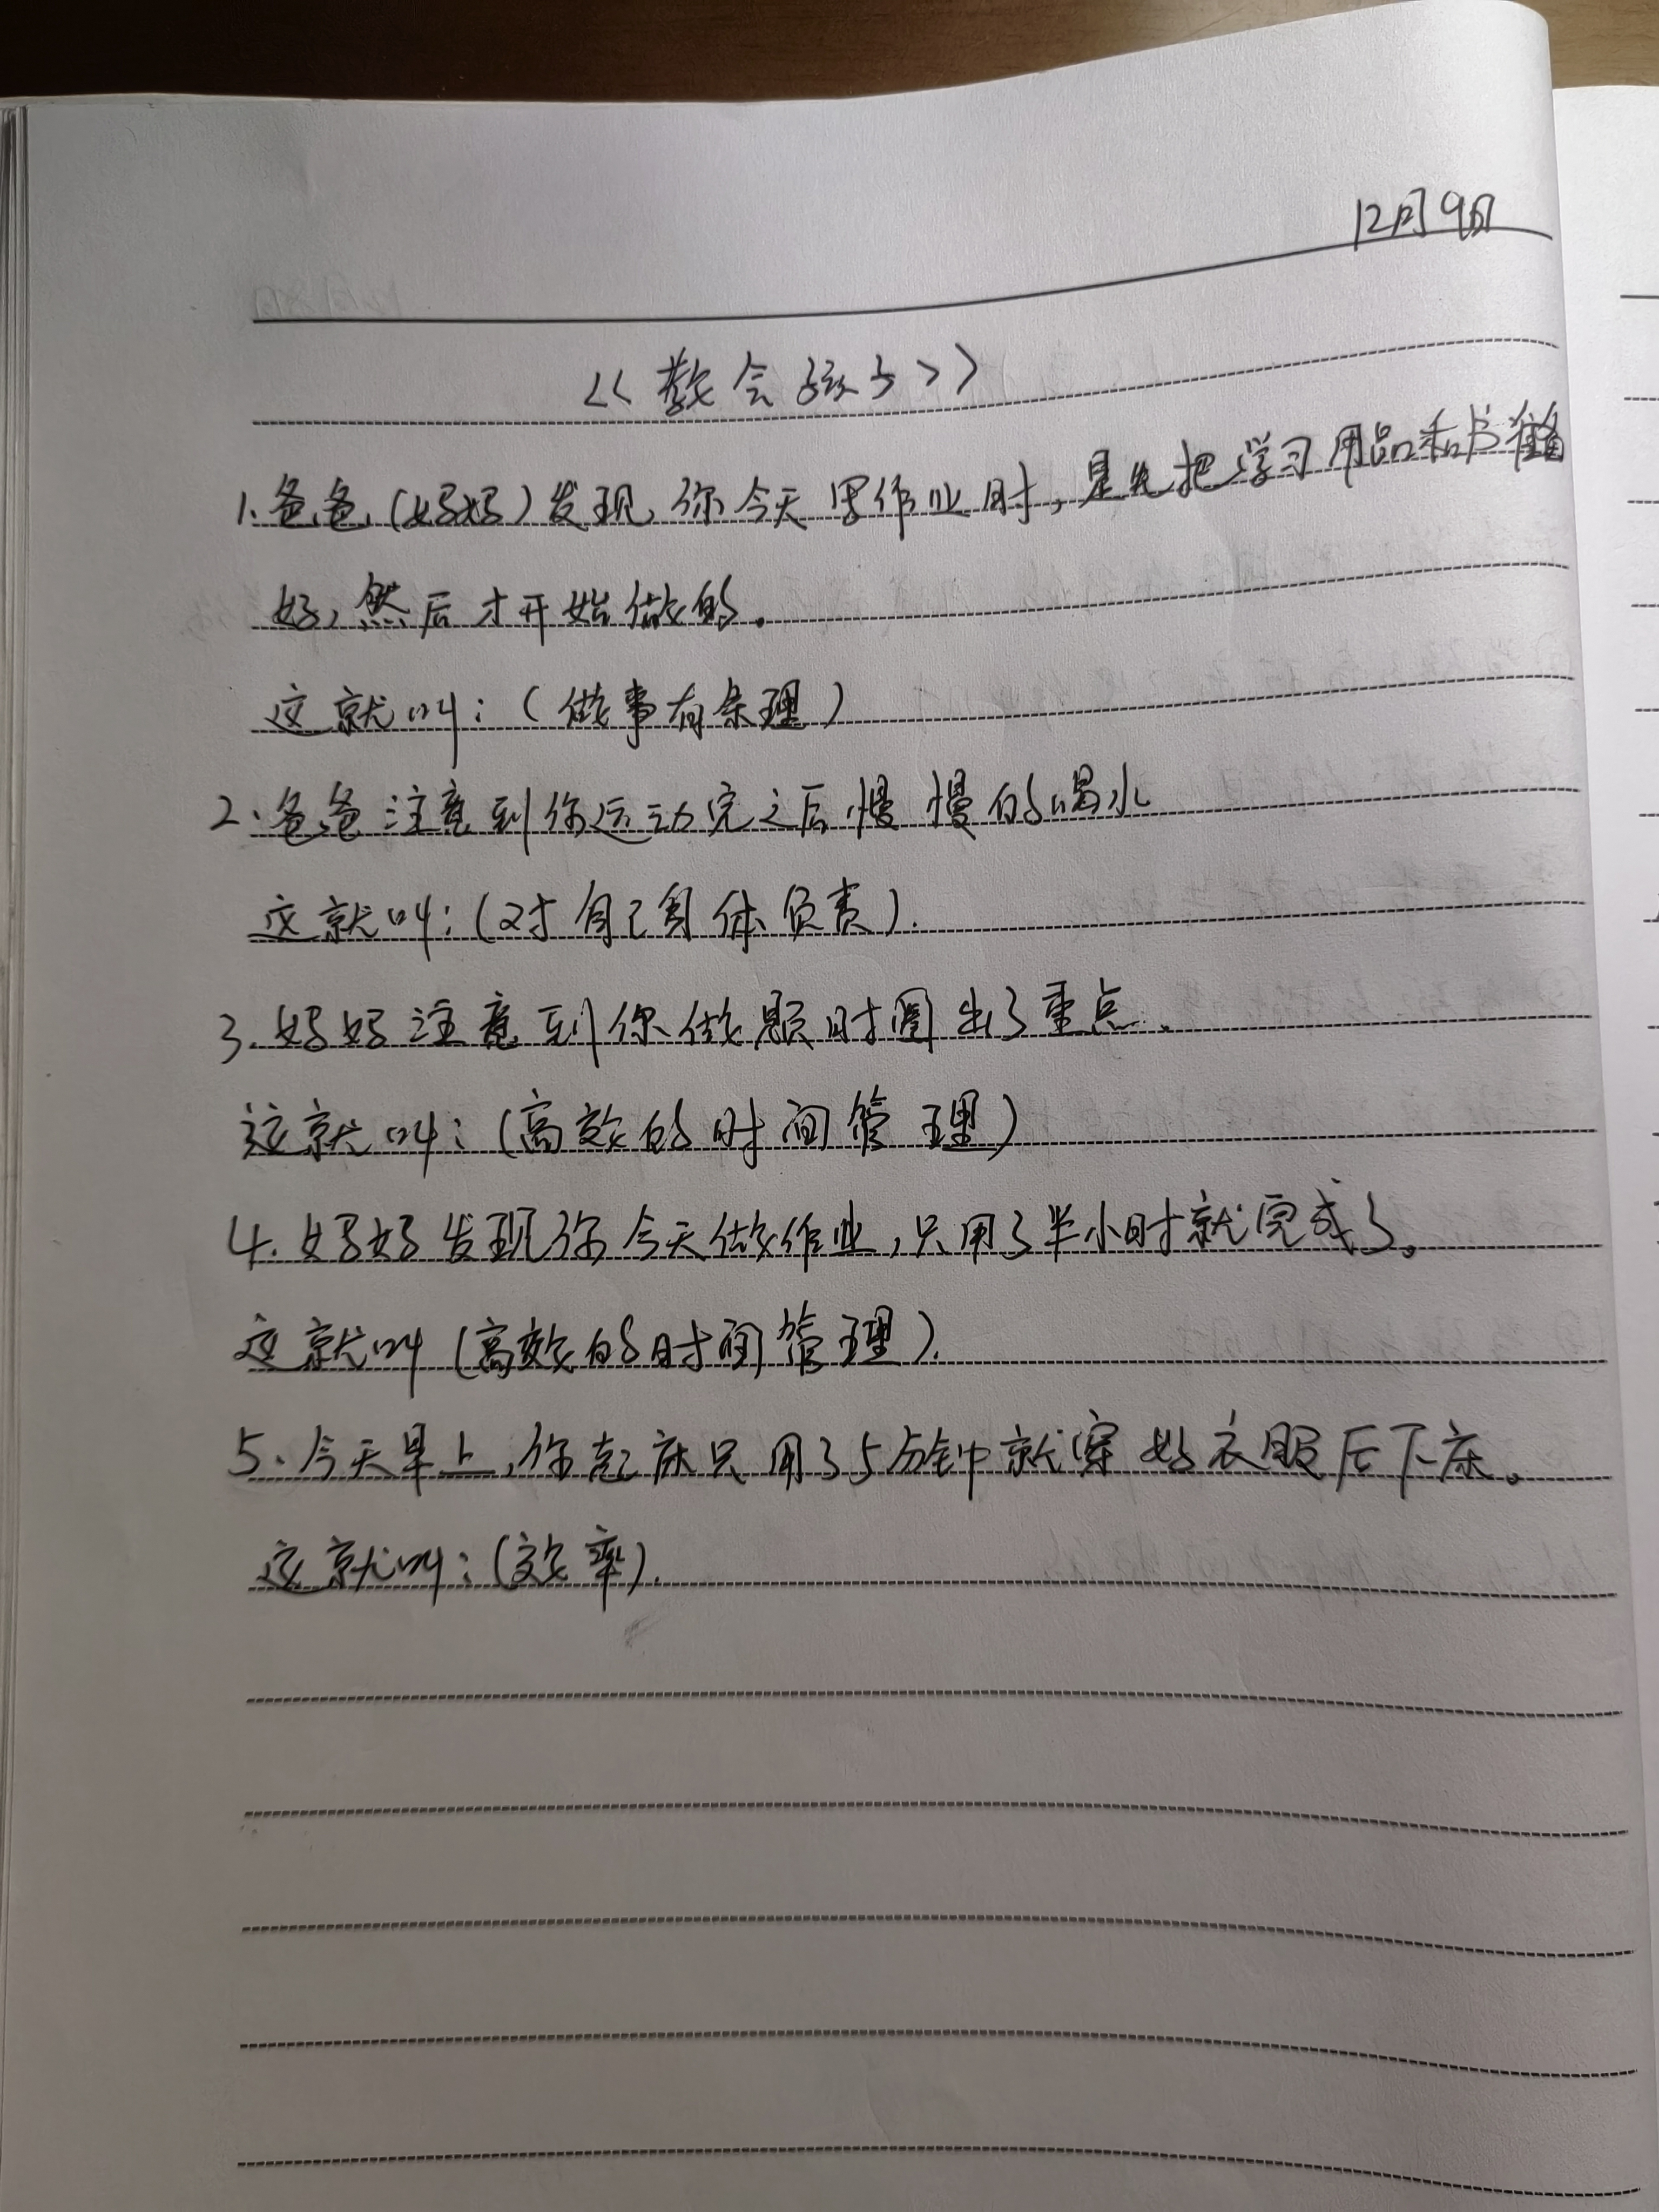 12月9日
<<教会孩子>>
1.爸爸(妈妈)发现,你今天写作业时,是先把学习用品和书准备
好,然后才开始做的.
这就叫:(做事有条理)
2.爸爸注意到你运动完之后慢慢的喝水
这就叫:(对自己身体负责).
3.妈妈注意到你做题时圈出了重点.
这就叫:(高效的时间管理)
4.妈妈发现你今天做作业,只用了半小时就完成了。
这就叫(高效的时间管理).
5.今天早上,你起床只用了5分钟就穿好衣服后下床。
这就叫:(效率).